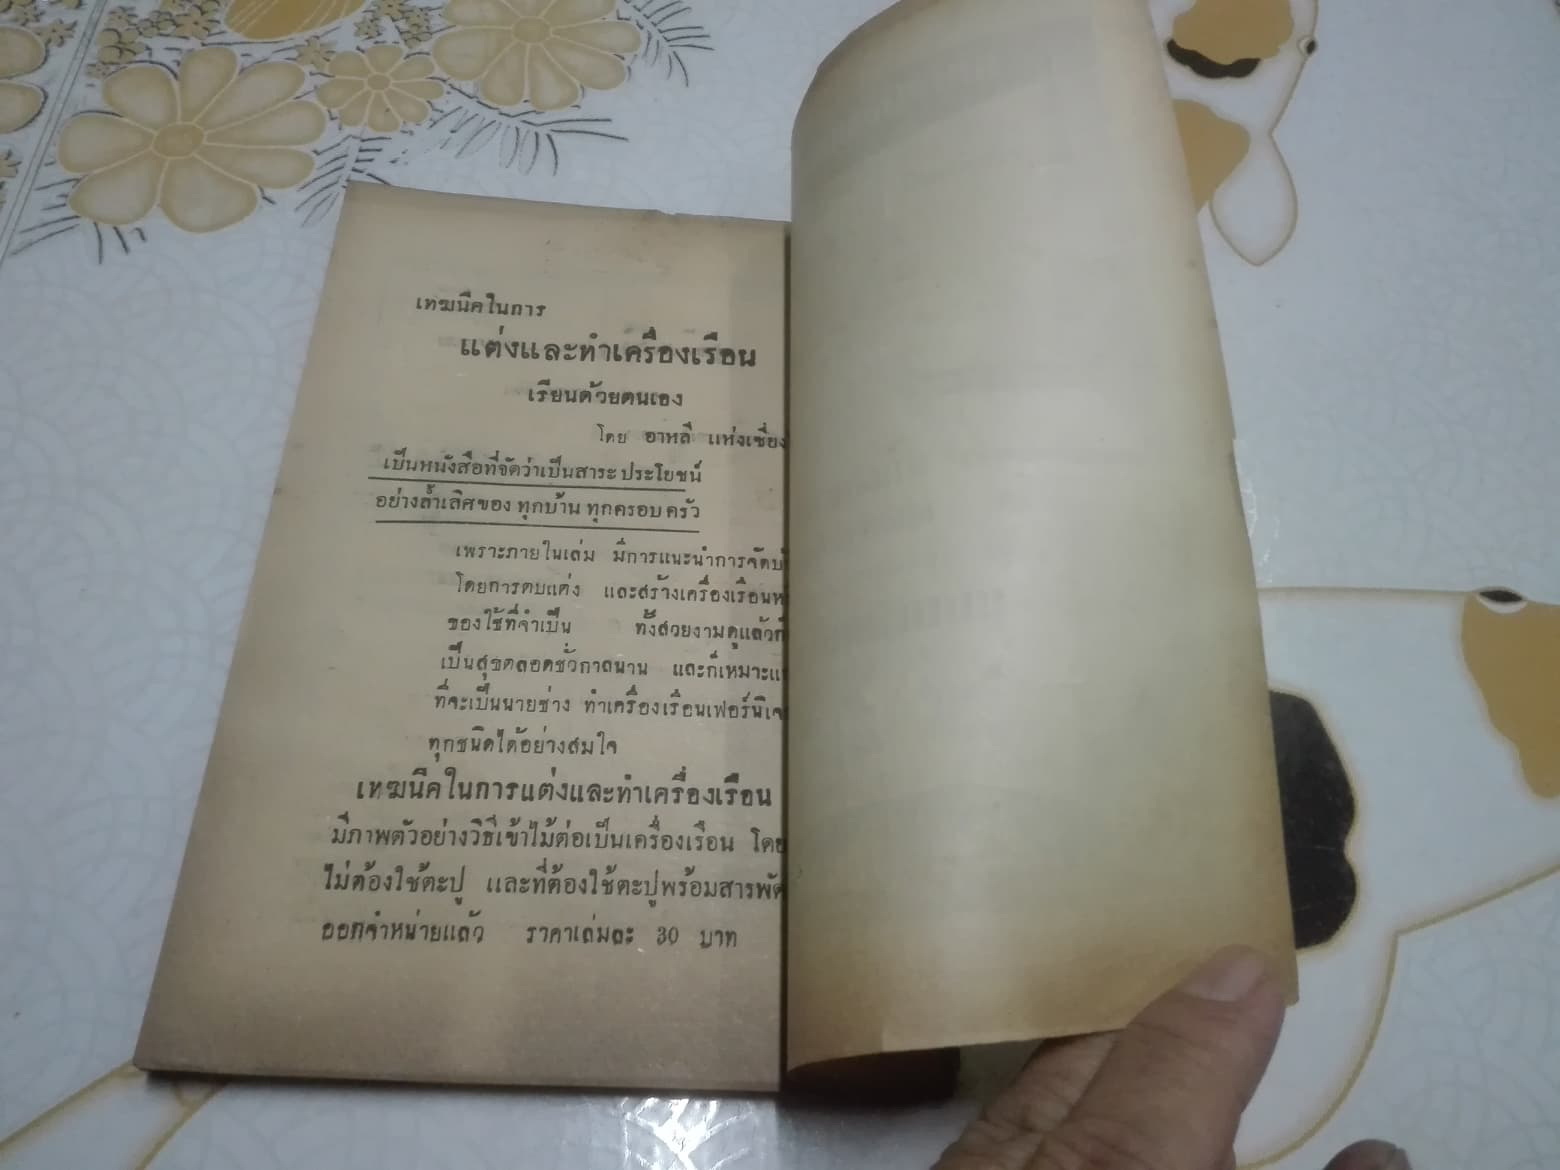 เทฆนิคในการ
แต่งและทำเครื่องเรือน
เรียนด้วยตนเอง
โดย อาหลี แห่งเซี่ยง
เป็นหนังสือที่จัดว่าเป็นสาระ ประโยชน์
อย่างล้ำเลิศของ ทุกบ้าน ทุกครอบ ครัว
เพราะภายในเล่ม มีการแนะนำการจัด
โดยการตบแต่ง และสร้างเครื่องเรือน
ของใช้ที่จำเป็น ทั้งสวยงามดูแล้ว
เป็นสุขตลอดชั่วกาลนาน และก็เหมาะ
ที่จะเป็นนายช่าง ทำเครื่องเรือนเฟอร์นิเจ
ทุกชนิดได้อย่างสมใจ
เทฆนิคในการแต่งและทำเครื่องเรือน
มีภาพตัวอย่างวิธีเข้าไม้ต่อเป็นเครื่องเรือน โดย
ไม่ต้องใช้ตะปู และที่ต้องใช้ตะปูพร้อมสารพัด
ออกจำหน่ายแล้ว ราคาเล่มละ 30 บาท